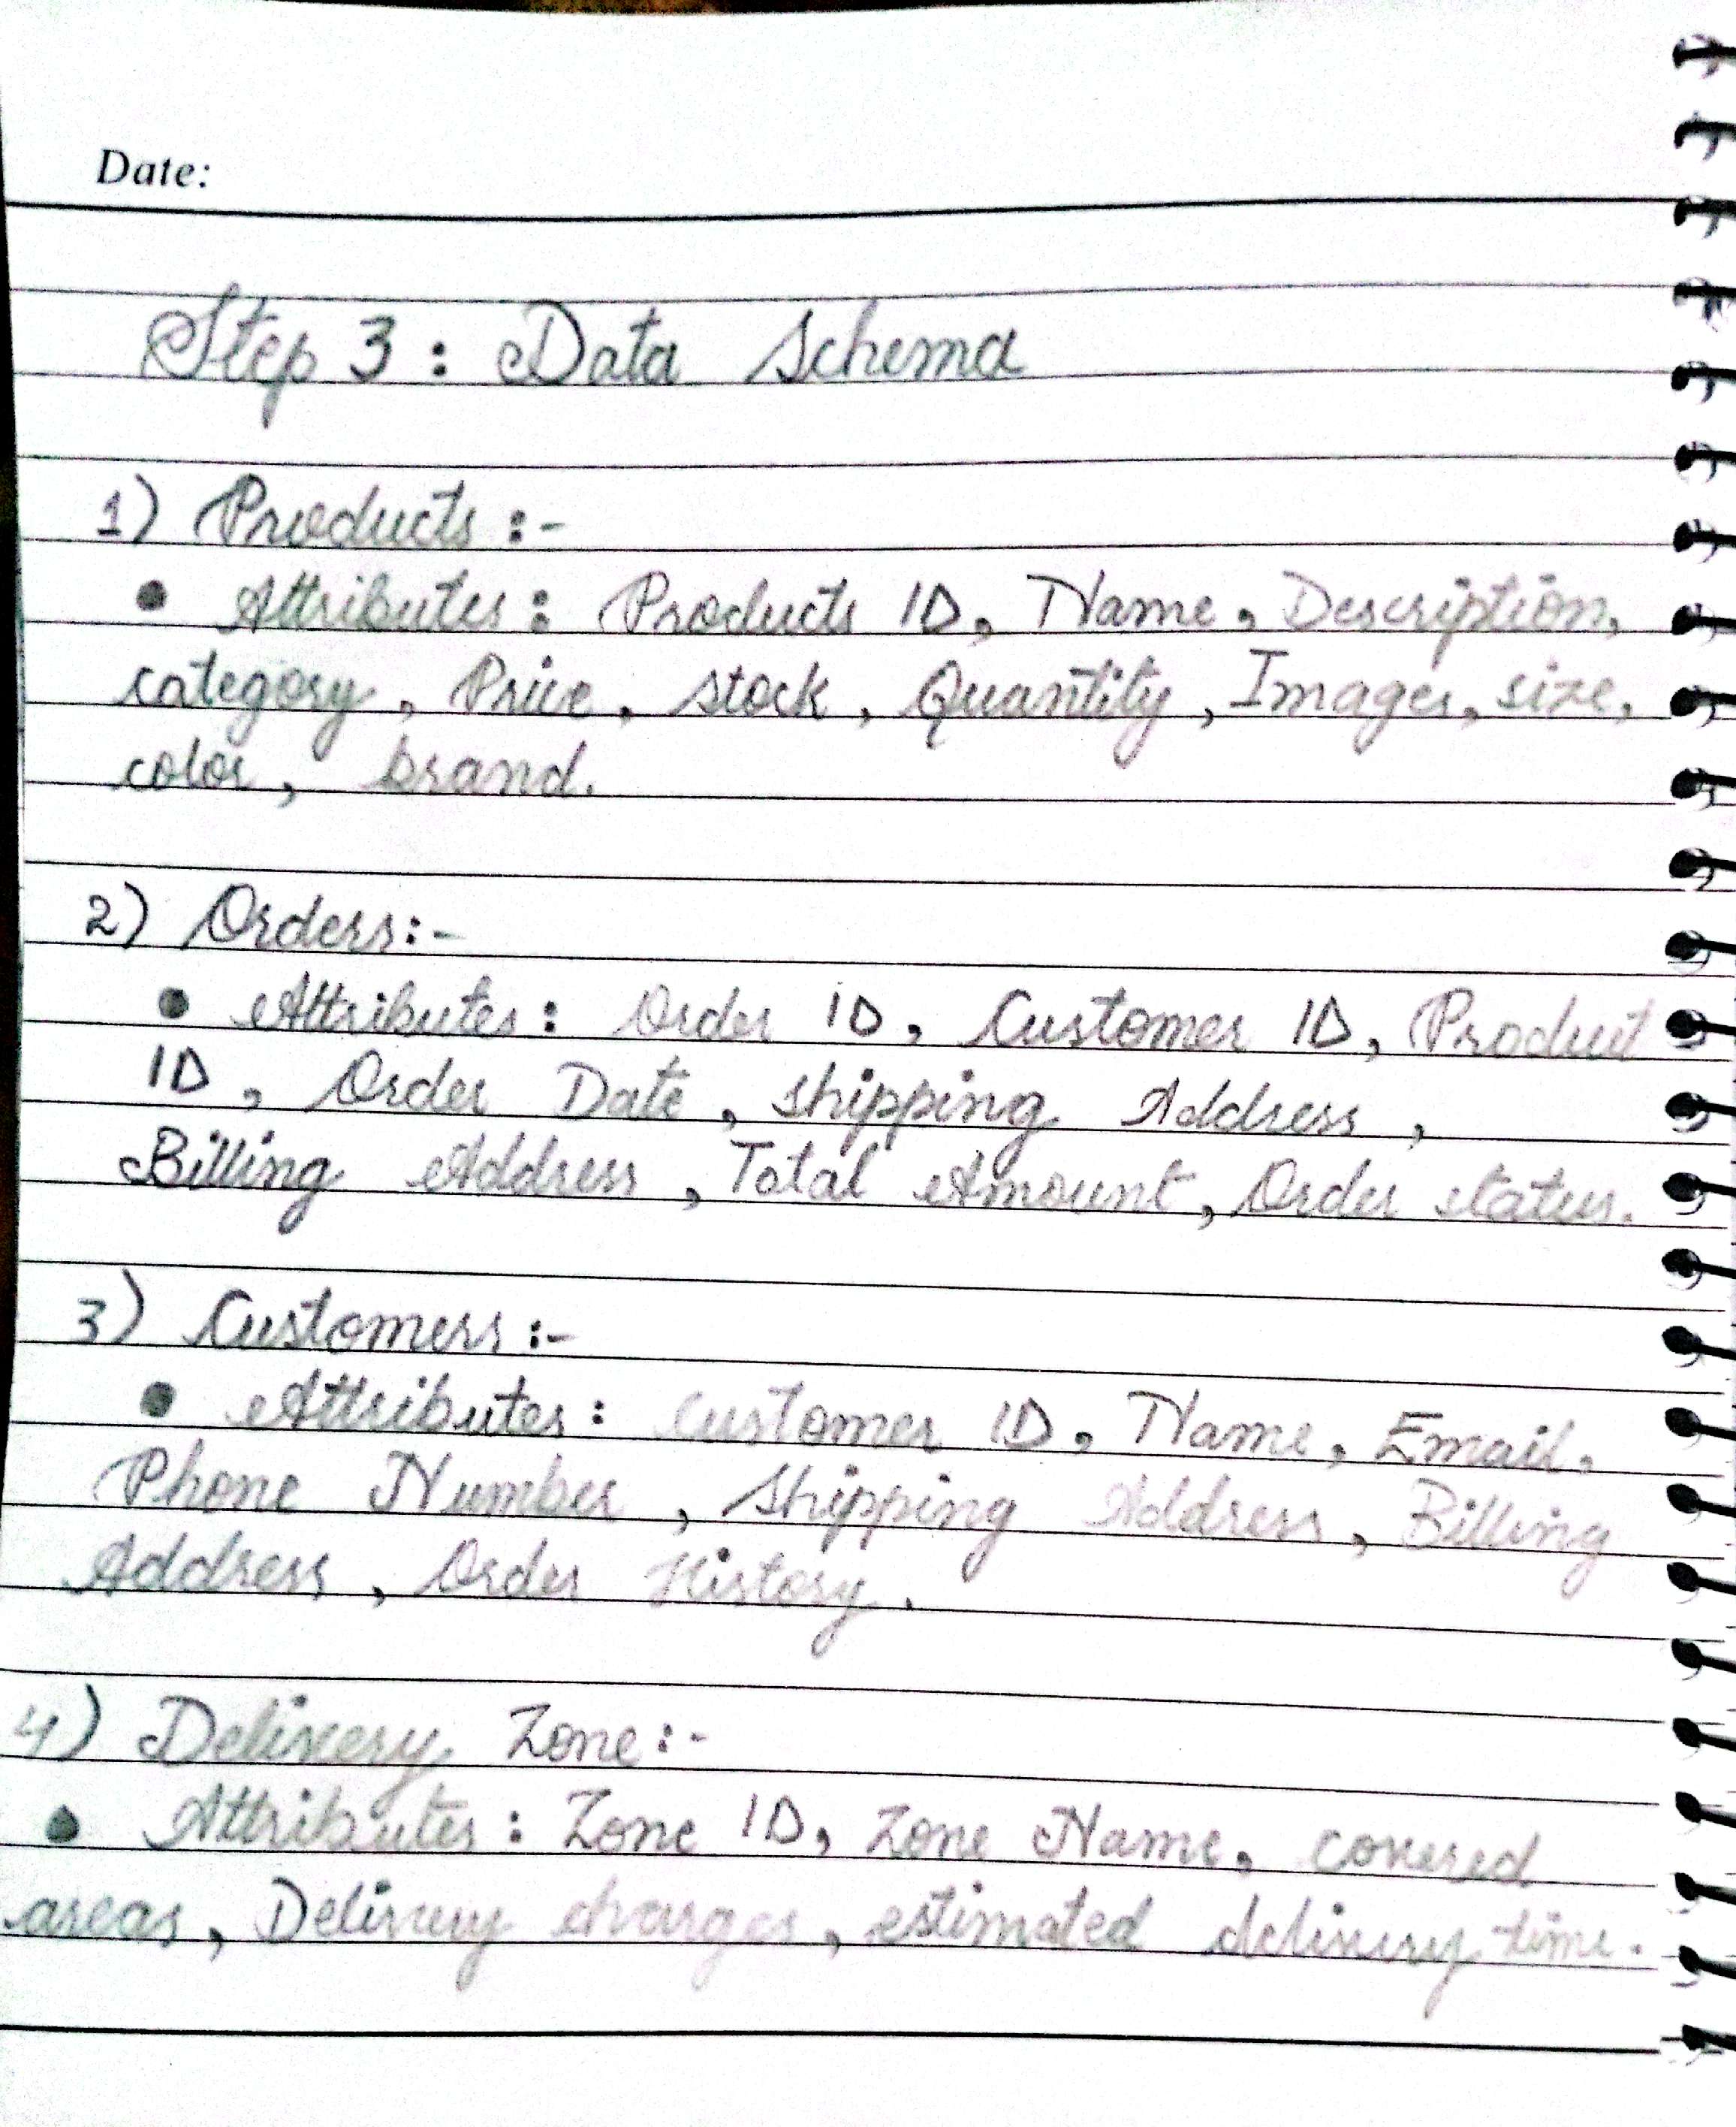 Date:
Step 3 : Data Schema
1) Products :-
• Attributes : Products ID, Name, Description,
category, Price, stock, Quantity, Images, size,
color, brand.
2) Orders:-
• Attributes : Order ID, Customer ID, Product
ID, Order Date, shipping Address,
Billing Address, Total Amount, Order status.
3) Customers :-
• Attributes : Customer ID, Name, Email,
Phone Number, Shipping Address, Billing
Address, Order History.
4) Delivery Zone:-
• Attributes : Zone ID, Zone Name, covered
areas, Delivery charges, estimated delivery time.